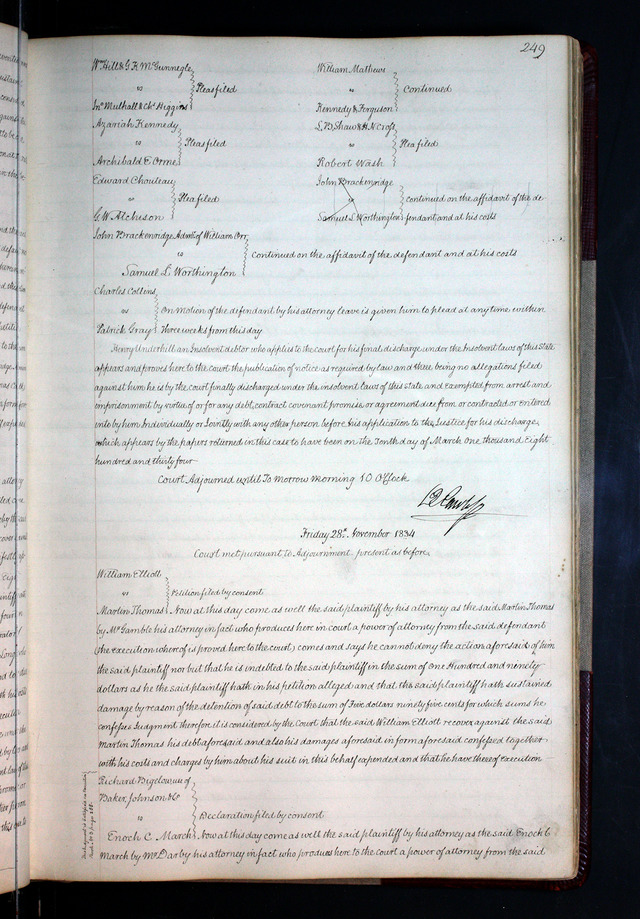 249
Wm Hill & G. K. McGunnegle
vs } Pleas filed
Jno Mulhall & Chs Higgins
William Mathews
vs } Continued
Kennedy & Ferguson
Azariah Kennedy
vs } Pleas filed
Archibald E Orme
L. B. Shaw & H. N. Croft
vs } Plea filed
Robert Wash
Edward Chouteau
vs } Plea filed
G. W. Atchison
John Brackenridge
vs } continued on the affidavit of the de-
Samuel L. Worthington fendant and at his costs
John Brackenridge Admr of William Orr
vs } Continued on the affidavit of the defendant and at his costs
Samuel L Worthington
Charles Collins
vs } On motion of the defendant by his attorney leave is given him to plead at any time within
Patrick Gray three weeks from this day
Henry Underhill an Insolvent debtor who applies to the court for his final discharge under the Insolvent laws of this State
appears and proves here to the court the publication of notice as required by law and there being no allegations filed
against him he is by the court finally discharged under the insolvent laws of this state and exempted from arrest and
imprisonment by virtue of or for any debt, contract covenant promise or agreement due from or contracted or entered
into by him Individually or Jointly with any other person before his application to the Justice for his discharge,
which appears by the papers returned in this case to have been on the Tenth day of March One thousand Eight
hundred and thirty four
Court Adjourned until To morrow morning 10 O'Clock
Friday 28th November 1834
Court met pursuant to Adjournment present as before
William Elliott
vs } Petition filed by consent
Martin Thomas Now at this day come as well the said plaintiff by his attorney as the said Martin Thomas
by Mr Gamble his attorney in fact who produces here in court a power of attorney from the said defendant
(the execution whereof is proved here to the court) comes and says he can not deny the action aforesaid of him
the said plaintiff nor but that he is indebted to the said plaintiff in the sum of One Hundred and ninety
dollars as he the said plaintiff hath in his petition alleged and that the said plaintiff hath sustained
damage by reason of the detention of said debt to the sum of Five dollars ninety five cents for which sums he
confesses Judgment therefore it is considered by the Court that the said William Elliott recover against the said
Martin Thomas his debt aforesaid and also his damages aforesaid in form aforesaid confessed together
with his costs and charges by him about his suit in this behalf expended and that he have thereof execution
Richard Bigelow use of
Baker Johnson & Co
vs } Declaration filed by consent
Enoch C. March Now at this day come as well the said plaintiff by his attorney as the said Enoch C
March by Mr Darby his attorney in fact who produces here to the court a power of attorney from the said